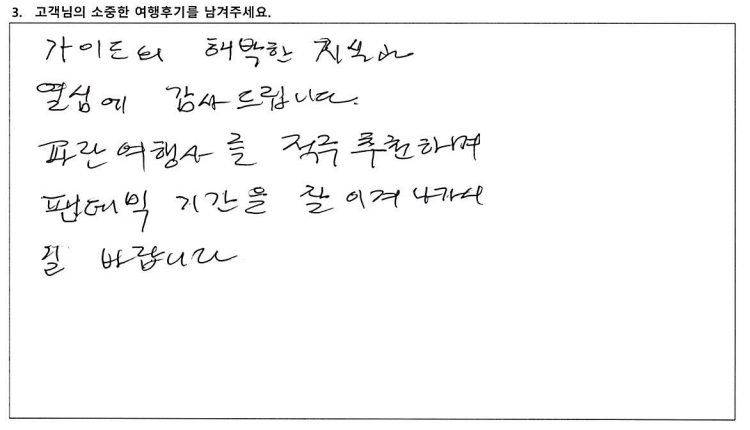 3. 고객님의 소중한 여행후기를 남겨주세요.
가이드의 해박한 지식과
열심에 감사드립니다.
파란여행사를 적극 추천하며
팬데믹 기간을 잘 이겨 나가시
길 바랍니다